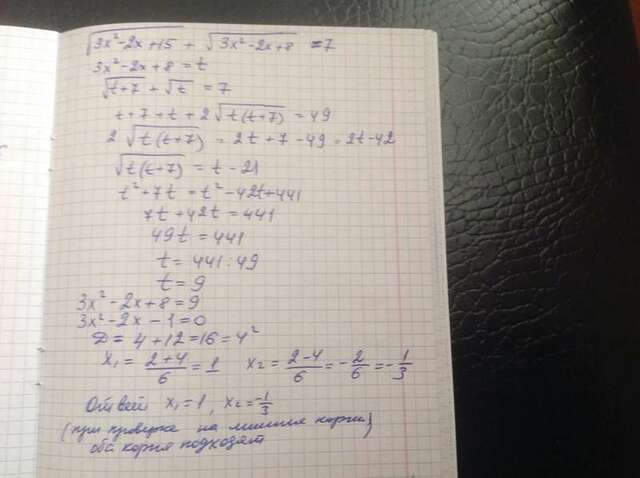 √3x²-2x+15 + √3x²-2x+8 = 7
3x²-2x+8 = t
√t+7 + √t = 7
t+7+t+2√t(t+7) = 49
2√t(t+7) = 2t+7-49 = 2t-42
√t(t+7) = t-21
t²+7t = t²-42t+441
7t+42t = 441
49t = 441
t = 441:49
t = 9
3x²-2x+8 = 9
3x²-2x-1 = 0
D = 4+12 = 16 = 4²
x₁ = (2+4)/6 = 1 x₂ = (2-4)/6 = -2/6 = -1/3
Ответ: x₁ = 1, x₂ = -1/3
(при проверке на лишние корни)
оба корня подходят